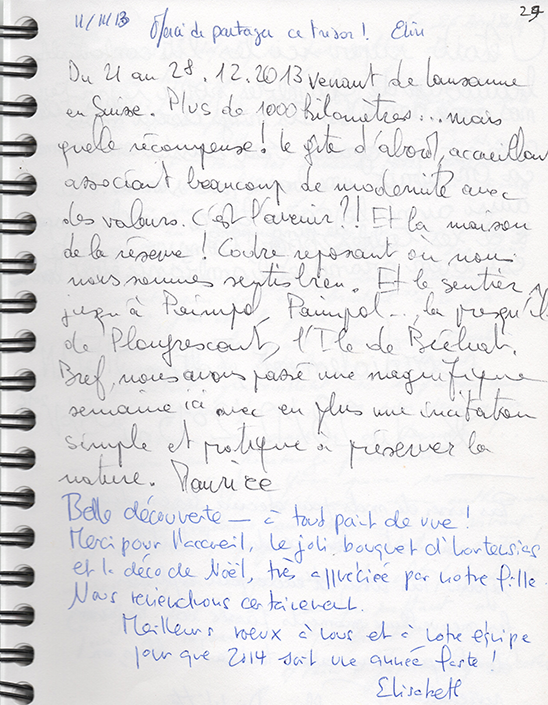 29
11/11/13 Merci de partager ce trésor !
Du 21 au 28.12.2013 venant de Lausanne
en Suisse. Plus de 1000 kilomètres... mais
quelle récompense ! le gîte d'abord, accueillant
associant beaucoup de modernité avec
des valeurs. C'est l'avenir ?!! Et la maison
de la réserve ! Cadre reposant où nous
nous sommes sentis bien. Et le sentier
jusqu'à Paimpol, Paimpol..., la presqu'île
de Plougrescant, l'Ile de Bréhat.
Bref, nous avons passé une magnifique
semaine ici avec en plus une incitation
simple et pratique à préserver la
nature. Maurice
Belle découverte — à tout point de vue !
Merci pour l'accueil, le joli bouquet d'hortensias
et la déco de Noël, très appréciée par notre fille.
Nous reviendrons certainement.
Meilleurs voeux à vous et à votre équipe
pour que 2014 soit une année faste !
Elisabeth